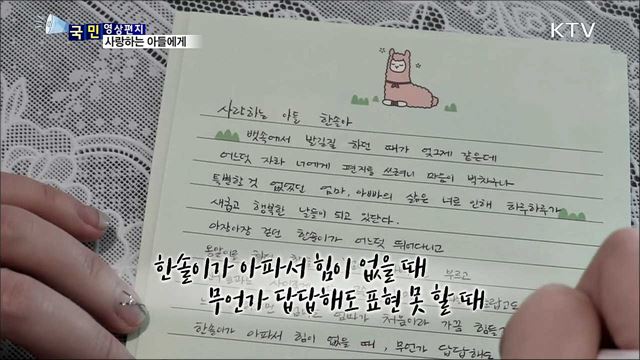 국민 영상편지
사랑하는 아들에게
KTV
사랑하는 아들 한솔아
뱃속에서 발길질 하던 때가 엊그제 같은데
어느덧 자라 너에게 편지를 쓰려하니 마음이 벅차구나
특별할 것 없었던 엄마, 아빠의 삶은 너로 인해 하루하루가
새롭고 행복한 날들이 되고 있단다.
아장아장 걷던 한솔이가 어느덧 뛰어다니고
부르고
한솔이가 아파서 힘이 없을 때
무언가 답답해도 표현 못 할 때
처음이라 가끔 힘들
한솔이가 아파서 힘이 없을 때, 무언가 답답해도